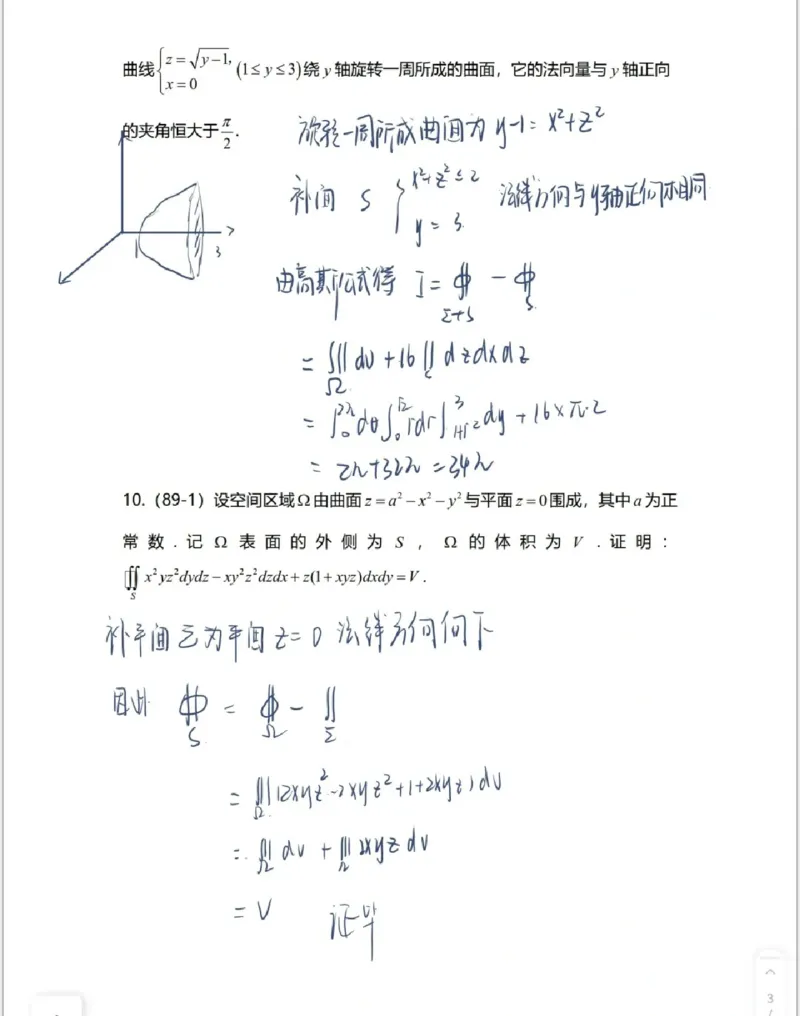 曲线{z=√(y−1), x=0 (1≤y≤3)绕 y 轴旋转一周所成的曲面，它的法向量与 y 轴正向
的夹角恒大于 π/2 .
旋转一周所成曲面为 y-1=x²+z²
补面 S { x²+z²≤2 法线方向与y轴正向相同
y=3.
1 3
由高斯公式得 I=∯_{Σ+S} − ∯_S
=∭_Ω dv+16∬_S dzdxdz
=∫_0^{2π}dθ∫_0^{√2}rdr∫_{1+r²}^3 dy+16×π·2
=2π+32π=34π
10.（89-1）设空间区域Ω由曲面 z=a²−x²−y² 与平面 z=0 围成，其中 a 为正
常数.记 Ω 表面的外侧为 S ， Ω 的体积为 V .证明：
∯_S x²yz²dydz−xy²z²dzdx+z(1+xyz)dxdy=V .
补平面Σ为平面z=0 法线方向向下
因此 ∯_S = ∯_Ω − ∬_Σ
=∭_Ω(2xyz²-2xyz²+1+2xyz)dv
=∭_Ω dv+∭_Ω 2xyz dv
=V 证毕
3
/